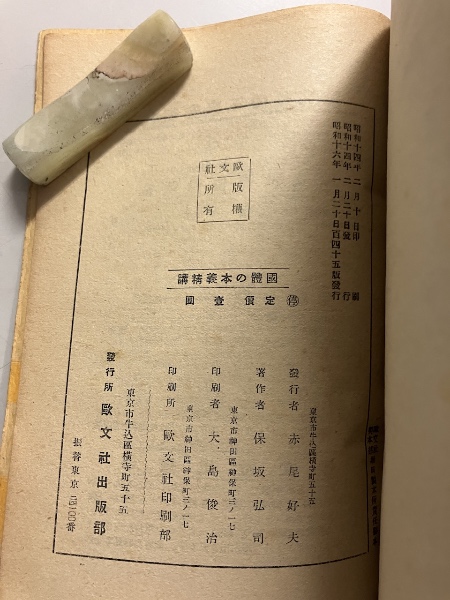 昭和十四年二月十日印刷
昭和十四年二月二十日發行
昭和十六年一月二十日百四十五版發行
歐文社
版權
所有
國體の本義精講
㊝定價壹圓
東京市牛込區横寺町五十五
發行者 赤尾好夫
著作者 保坂弘司
東京市神田區神保町三ノ一七
印刷者 大島俊治
東京市神田區神保町三ノ一七
印刷所 歐文社印刷部
東京市牛込區横寺町五十五
發行所 歐文社出版部
振替東京